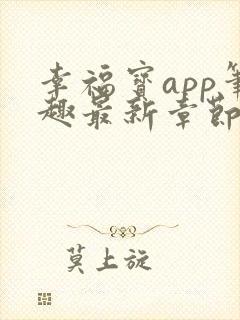 幸福宝app笔
趣最新章节
莫上旋